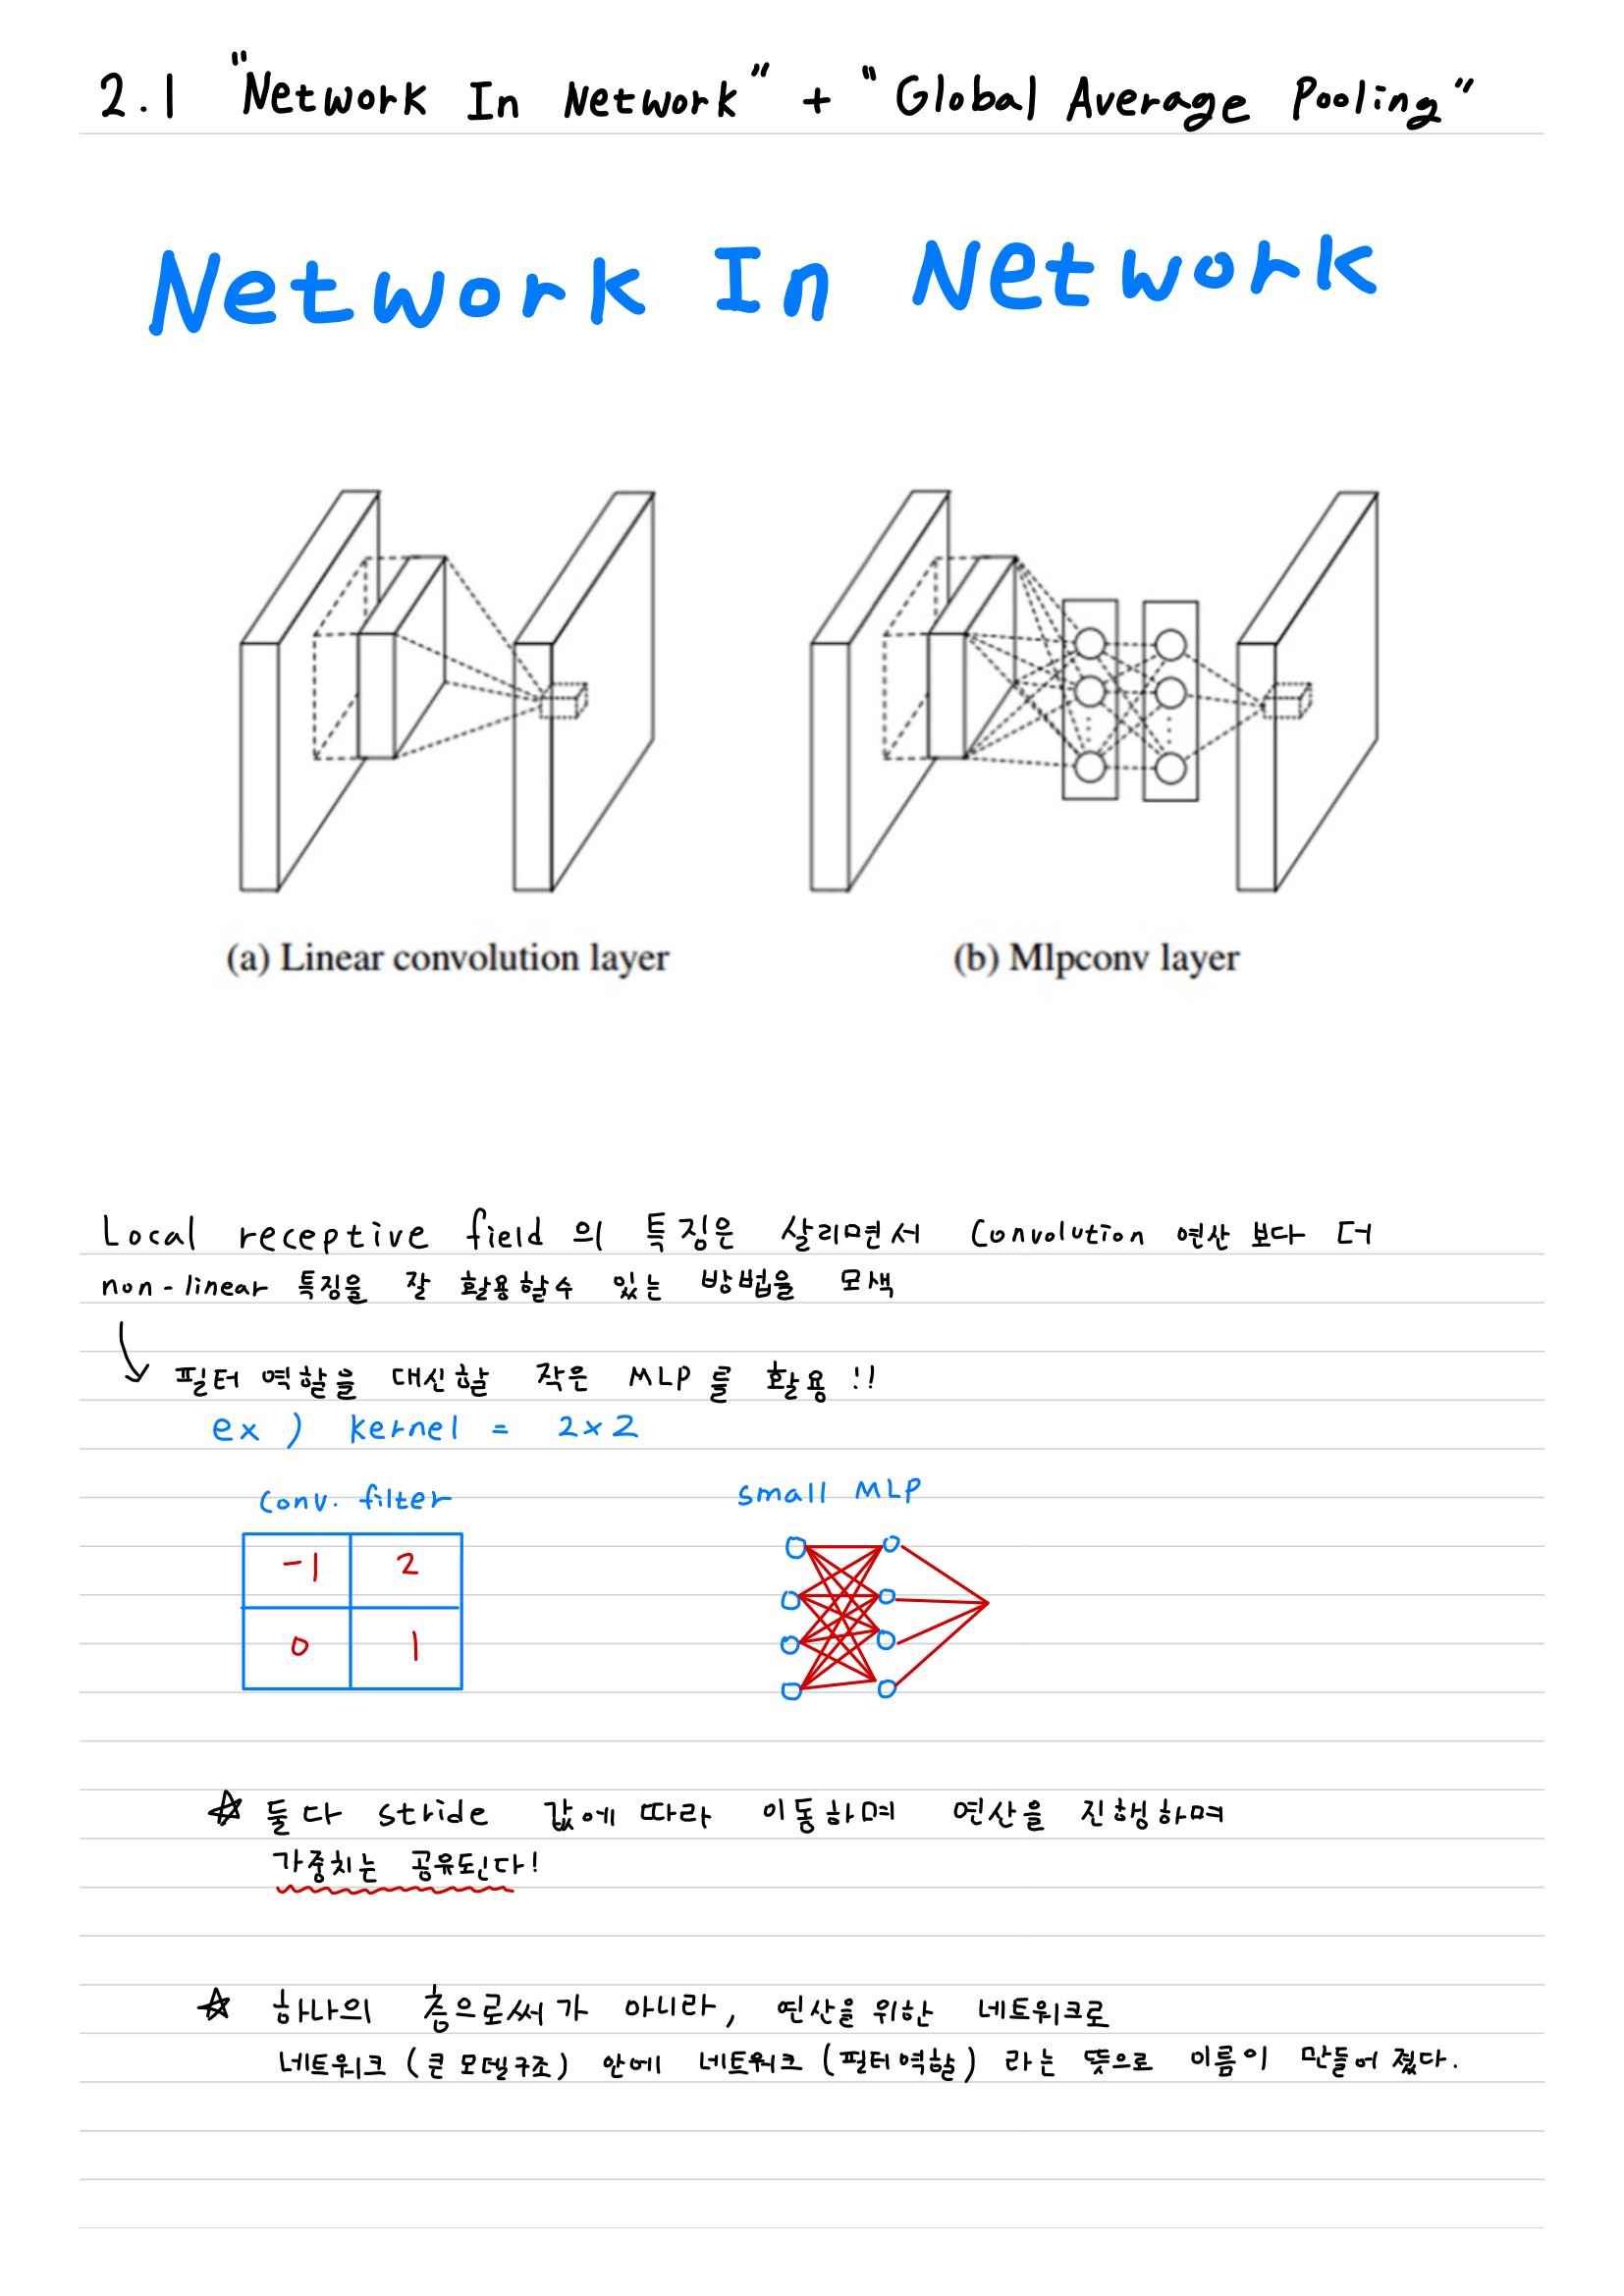 2.1 "Network In Network" + "Global Average Pooling"
Network In Network
(a) Linear convolution layer
(b) Mlpconv layer
Local receptive field 의 특징은 살리면서 Convolution 연산 보다 더
non-linear 특징을 잘 활용할수 있는 방법을 모색
필터 역할을 대신할 작은 MLP를 활용!!
ex) kernel = 2×2
Conv. filter
small MLP
-1 2
0 1
☆ 둘다 stride 값에 따라 이동하며 연산을 진행하며
가중치는 공유된다!
☆ 하나의 층으로써가 아니라, 연산을 위한 네트워크로
네트워크 (큰 모델구조) 안에 네트워크 (필터역할) 라는 뜻으로 이름이 만들어 졌다.